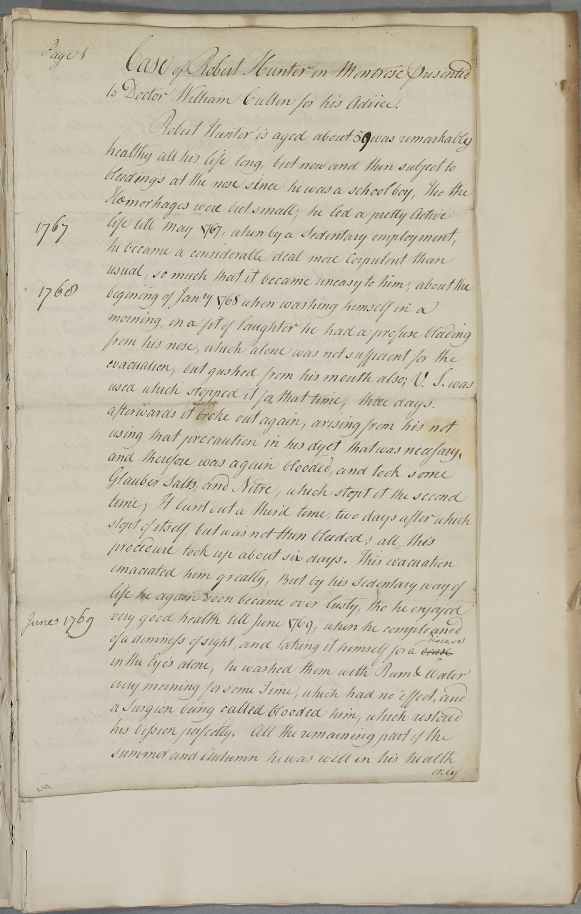 Page 1
Case of Robert Hunter in Montrose presented
to Doctor William Cullen for his Advice.
Robert Hunter is aged about 59 was remarkably
healthy all his life long, but now and then subject to
bleedings at the nose since he was a school boy, tho the
Hæmorhages were but small; he led a pretty Active
1767
life till May 1767, when by a Sedentary employment,
he became a considerable deal more Corpulent than
usual, so much that it became uneasy to him; about the
1768
begining of Janry 1768 when washing himself in a
morning, in a fit of laughter he had a profuse bleeding
from his nose, which alone was not sufficient for the
evacuation, but gushed from his mouth also; V. S. was
used which stopped it for that time; three days
afterwards it broke out again, arising from his not
using that precaution in his dyet that was necessary,
and therefore was again blooded, and took some
Glauber Salts, and Nitre, which stopt it the second
time; It burst out a third time, two days after which
stopt of itself but was not then bleeded; all this
procedure took up about six days. This evacuation
emaciated him greatly, But by his sedentary way of
life he again soon became over lusty, tho he enjoyed
June 1769
very good health till June 1769, when he compleaned
of a dimness of sight, and taking it himself for a disease
in the Eyes alone, he washed them with Rum & Water
every morning for some Time, which had no effect, and
a Surgion being called blooded him, which restored
his vission perfectly. All the remaining part of the
summer and Autumn he was well in his health
only